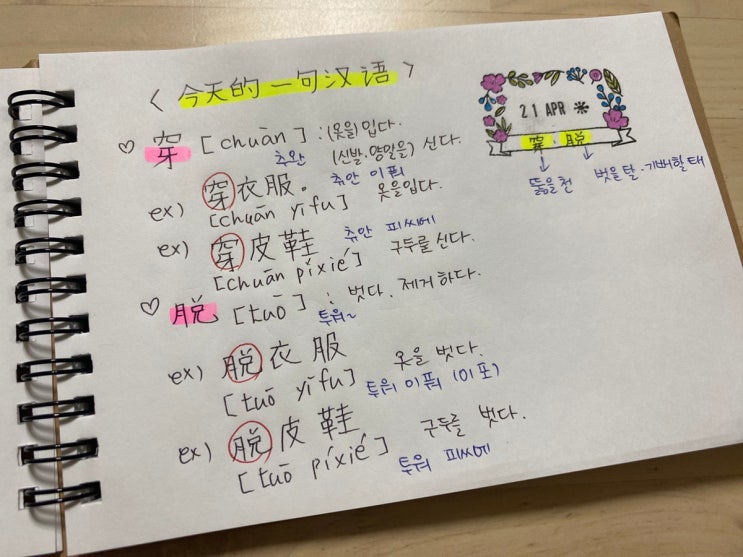 < 今天的 一句汉语 >
21 APR
穿, 脱
뚫을천
벗을 탈·기뻐할 태
♡ 穿 [chuān] : (옷을)입다.
(신발.양말을) 신다.
츄완
ex) 穿衣服。 츄안 이풔
[chuān yīfu] 옷을입다.
ex) 穿皮鞋 츄안 피씨에
[chuān píxié] 구두를 신다.
♡ 脱 [tuō] : 벗다. 제거하다.
투워~
ex) 脱衣服 옷을 벗다.
[tuō yīfu] 투워 이풔 (이포)
ex) 脱皮鞋 구두를 벗다.
[tuō píxié] 투워 피씨에